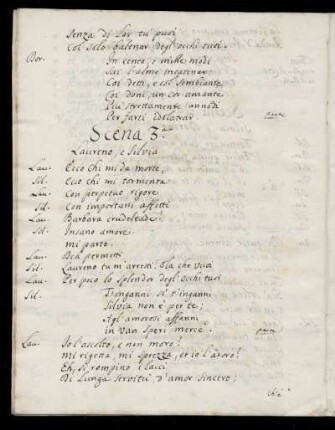 Senza di Lor tu puoi
Col solo balenar degl'occhi tuoi.
Bor. In cento, e mille modi
Sai l'alme incatenar,
Coi detti, e col sembiante
Coi doni, un cor amante
Più strettamente annodi
Per farti idolatrar.
Scena 3.a
Laureno, e Silvia
Lau. Ecco chi mi dà morte,
Sil. Ecco chi mi tormenta
Lau. Con perpetuo rigore
Sil. Con importuni affetti
Lau. Barbara crudeltade.
Sil. Insano amore.
mi parto.
Lau. Bea permetti
Sil. Laureno tu m'arresti? Olà che vuoi
Lau. Per poco lo splendor degl'occhi tuoi
Sil. T'inganni sì, t'inganni
Silvia non è per te;
Agl'amorosi affanni
in van speri mercè.
Lau. Io l'ascolto, e non moro?
mi rigetta, mi sprezza, et io l'adoro!
Eh, si rompino i lacci
Di lunga servitù d'amor sincero;